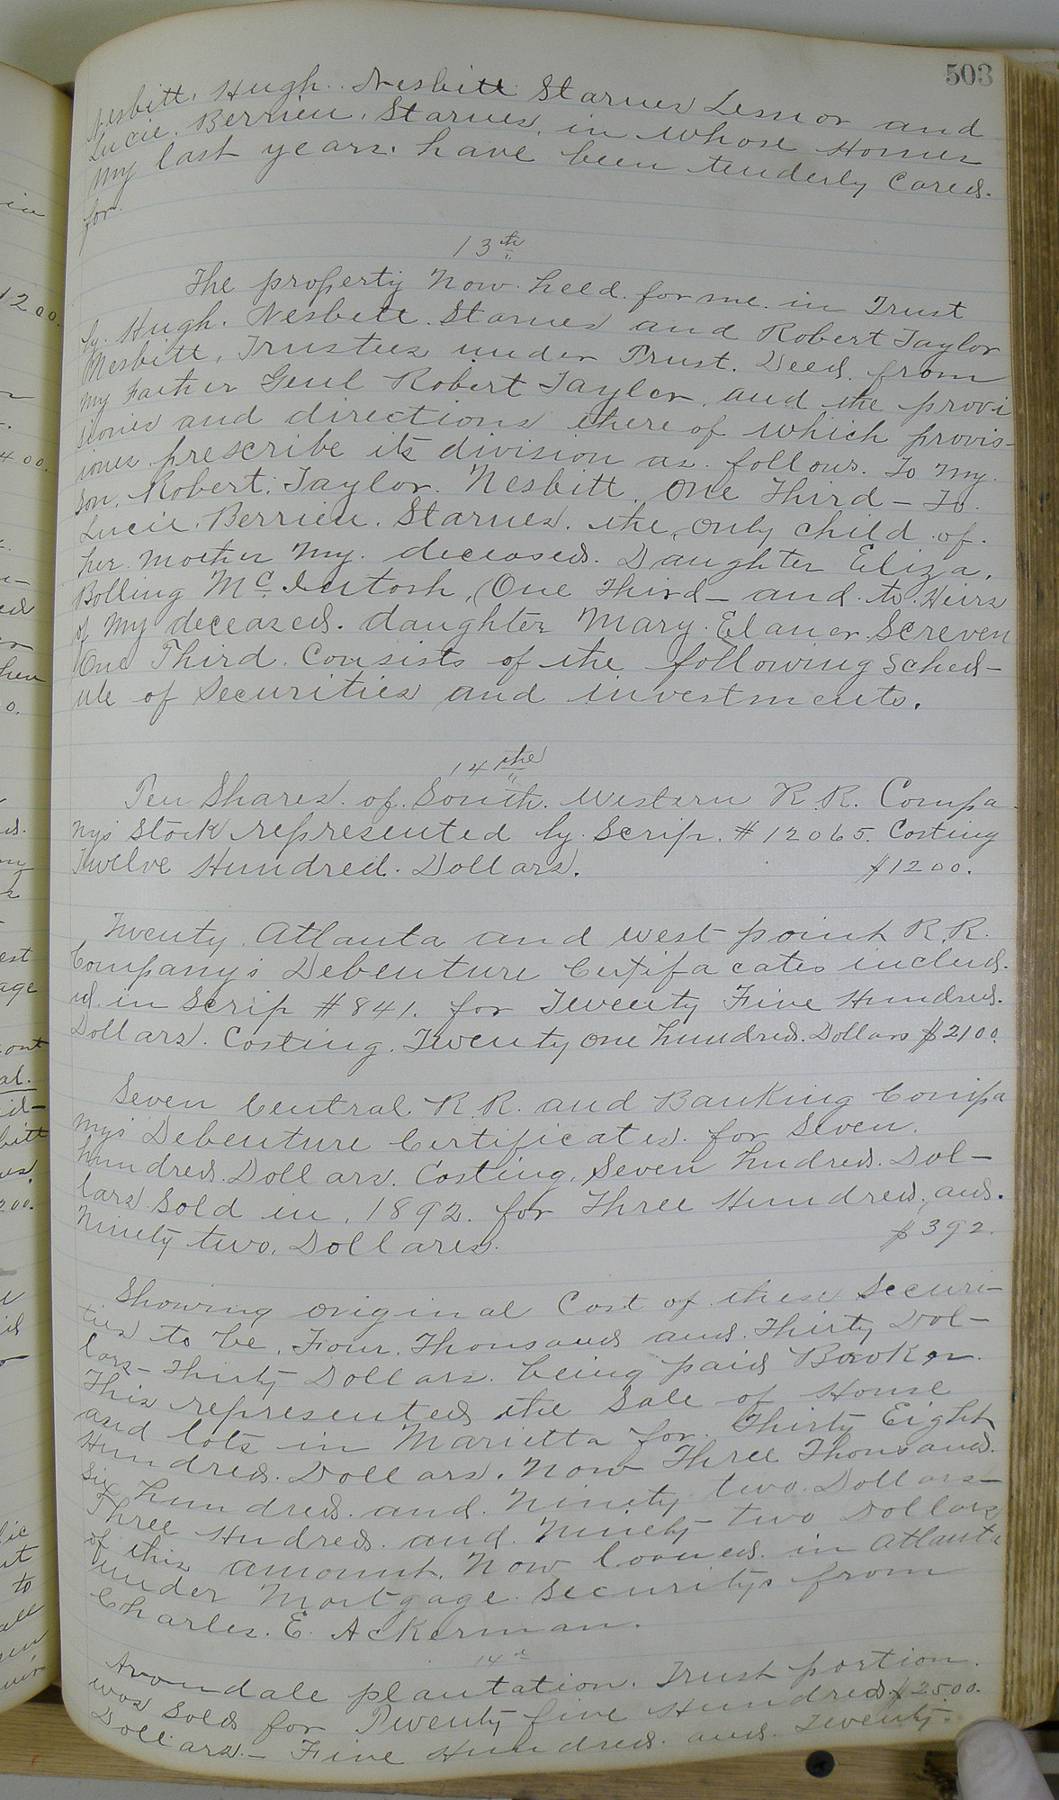 503
Nesbitt. Hugh. Nesbitt Starnes Lessor and
Lucie. Berrien. Starnes, in whose Homes
my last years. have been tenderly cared.
for.
13th
The property now held for me in Trust
by. Hugh. Nesbitt. Starnes and Robert Taylor
Nesbitt, Trustees under Trust. Deed. from
my Father Genl Robert Taylor, and the provi
sions and directions there of which provis-
iones prescribe its division as follows. To my
son, Robert. Taylor. Nesbitt, One Third - To
Lucie. Berrien. Starnes. the only child of.
her mother my. deceased. Daughter Eliza.
Bolling Mc. Intosh, One Third - and to Heirs
of my deceased. daughter Mary. Elaner Screven
One Third. Consists of the following Sched-
ule of Securities and investments.
14the
Ten Shares. of. South. Western R.R. Compa
ny's Stock represented by. Scrip. #12065. Costing
Twelve Hundred. Dollars. $1200.
Twenty. Atlanta and West point R.R.
Company's Debenture Certifacates includ.
ed in Scrip #841. for Twenty Five Hundred.
Dollars. Costing. Twenty one hundred. Dollars $2100.
Seven Central R.R. and Banking Compa
ny's Debenture Certificates. for Seven.
hundred. Dollars. Costing, Seven hudred. Dol-
lars Sold in. 1892. for Three Hundred, and.
Ninety two. Dollares. $392.
Showing original Cost of these Securi-
ties to be, Four. Thousand and. Thirty Dol-
lars - Thirty Dollars. being paid Broker.
This represented the Sale of House
and lots in Marietta for. Thirty Eight
Hundred. Dollars. Now Three Thousand.
Six hundred. and. Ninety two Dollars -
Three Hundred. and. Ninety two Dollars
of this amount. Now loaned. in Atlanta
under Mortgage Securitys from
Charles. E. Ackerman.
14th
Avondale plantation. Trust portion.
was Sold for Twenty five Hundred $2500.
Dollars. - Five Hundred. and. Twenty.